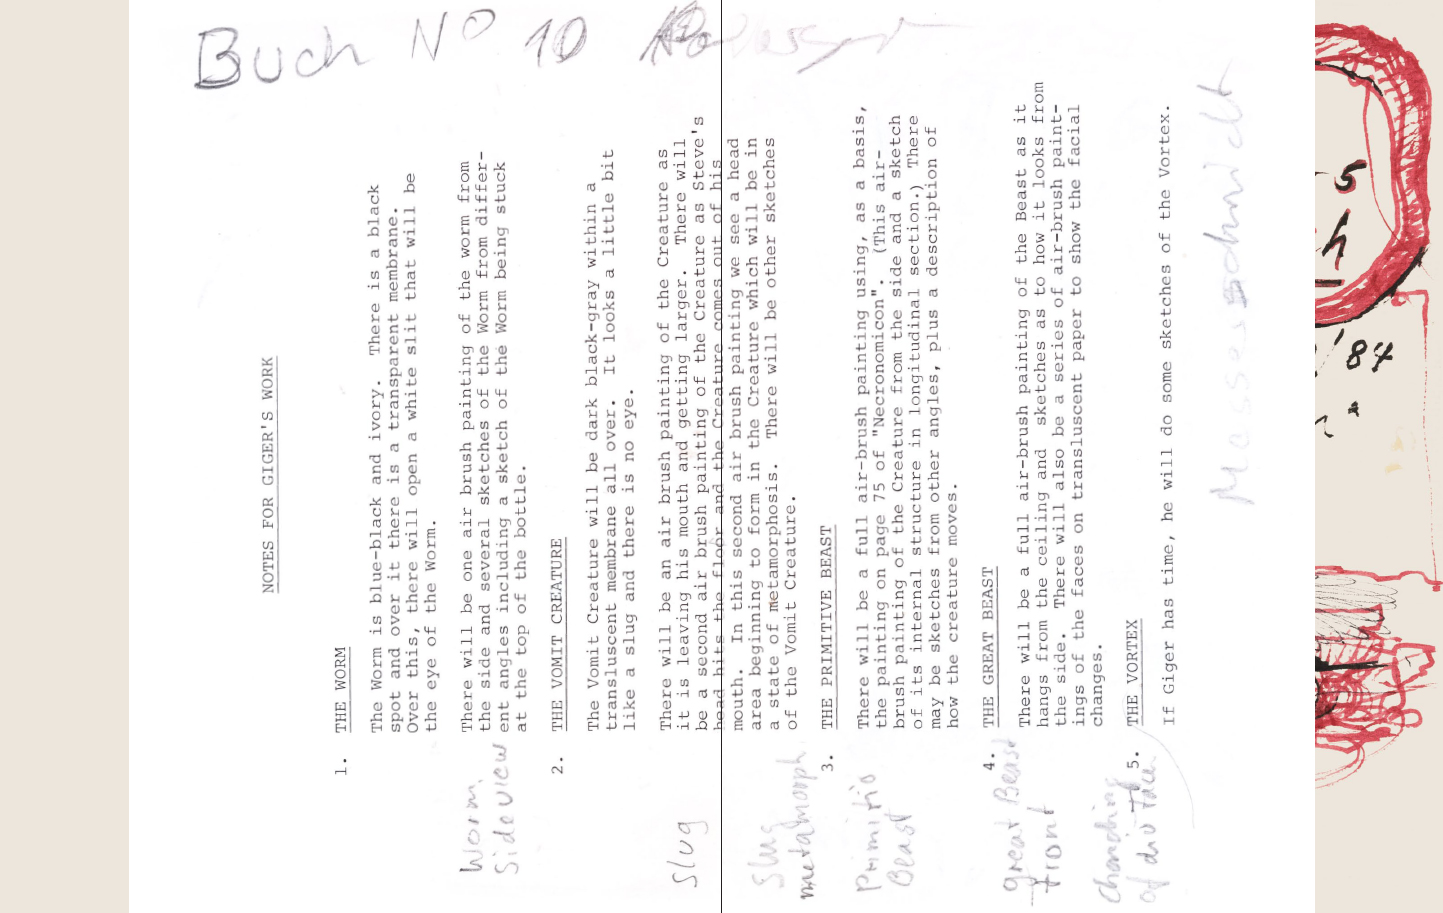 Buch Nº 10
NOTES FOR GIGER'S WORK
1. THE WORM
The Worm is blue-black and ivory. There is a black
spot and over it there is a transparent membrane.
Over this, there will open a white slit that will be
the eye of the Worm.
Worm
Side view
There will be one air brush painting of the worm from
the side and several sketches of the Worm from differ-
ent angles including a sketch of the Worm being stuck
at the top of the bottle.
2. THE VOMIT CREATURE
The Vomit Creature will be dark black-gray within a
transluscent membrane all over. It looks a little bit
like a slug and there is no eye.
Slug
There will be an air brush painting of the Creature as
it is leaving his mouth and getting larger. There will
be a second air brush painting of the Creature as Steve's
head hits the floor and the Creature comes out of his
mouth. In this second air brush painting we see a head
area beginning to form in the Creature which will be in
a state of metamorphosis. There will be other sketches
of the Vomit Creature.
Slug
metamorph
3. THE PRIMITIVE BEAST
Primitio
Beast
There will be a full air-brush painting using, as a basis,
the painting on page 75 of "Necronomicon". (This air-
brush painting of the Creature from the side and a sketch
of its internal structure in longitudinal section.) There
may be sketches from other angles, plus a description of
how the creature moves.
4. THE GREAT BEAST
great Beast
front
There will be a full air-brush painting of the Beast as it
hangs from the ceiling and sketches as to how it looks from
the side. There will also be a series of air-brush paint-
ings of the faces on transluscent paper to show the facial
changes.
5. THE VORTEX
If Giger has time, he will do some sketches of the Vortex.
Messerschmidt
5
h
/84